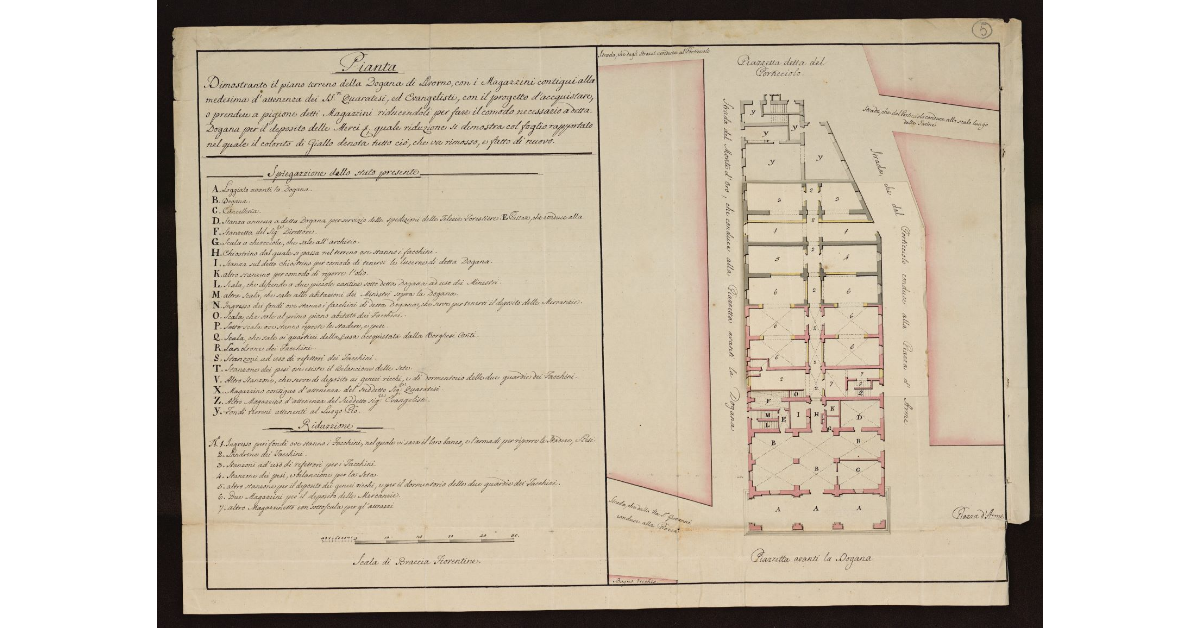 5
Pianta
Dimostrante il piano terreno della Dogana di Livorno, con i Magazzini contigui alla
medesima d'attenenza dei SS.ri Quaratesi, ed Evangelisti, con il progetto d'acquistare,
o prendere a pigione detti Magazzini riducendoli per fare il comodo necessario a detta
Dogana per il deposito delle Merci, quale riduzione si dimostra col foglio rapportato
nel quale il colorito di Giallo denota tutto ciò, che va rimosso, e fatto di nuovo.
Spiegazzione dello stato presente
A. Loggiato avanti la Dogana.
B. Dogana.
C. Cancelleria.
D. Stanza annessa a detta Dogana per servizio delle spedizioni delle Telerie Forestiere. E. che conduce alla
F. Stanzetta del Sig.re Direttore.
G. Scala a chiocciola, che sale all'archivio.
H. Chiostrino dal quale si passa nel terreno ove stanno i facchini.
I. Stanza sul detto chiostrino per comodo di tenervi le lucerne di detta Dogana.
K. altro stanzino per comodo di riporre l'olio.
L. Scala, che discende a due piccole cantine sotto detta Dogana ad uso dei Ministri.
M. altra Scala, che sale alle abitazioni dei Ministri sopra la Dogana.
N. Ingresso dei fondi ove stanno i facchini di detta Dogana, che serve per tenervi il deposito delle Mercanzie.
O. Scala, che sale al primo piano abitato dai Facchini.
P. Sotto scala ove stanno riposte le stadere, e pesi.
Q. Scala, che sale ai quartieri della Casa acquistata dalla Borghesi Conti.
R. Stanzone dei Facchini.
S. Stanzoni ad uso di refettori dei Facchini.
T. Stanzone dei pesi con il Bilancione delle Sete.
V. Altro Stanzone, che serve di deposito ai generi ricchi, e di dormentorio delle due guardie dei Facchini.
X. Magazzino contiguo d'attenenza del suddetto Sig.re Quaratesi
Z. Altro Magazzino d'attenenza del Suddetto Sig.re Evangelisti.
Y. Fondi terreni attenenti al Luogo Pio.
Riduzione
N. 1. Ingresso per i fondi ove stanno i Facchini, nel quale vi sarà il loro banco, e l'armadi per riporre le Stadere, e Pesi.
2. dei Facchini.
3. Stanzoni ad uso di refettori per i Facchini.
4. Stanzone dei pesi, e bilancione per la Seta.
5. altro stanzone per il deposito dei generi ricchi, e per il dormentorio delle due guardie dei Facchini.
6. Due Magazzini per il deposito delle Mercanzie.
7. Altro Magazzinetto con sottoscala per gl'attrazzi
10 20 30 40 50
Scala di Braccia Fiorentine.
Piazzetta detta del
Porticciolo
Strada del Monte d'Oro, che conduce alla Piazzetta avanti la Dogana.
Strada che dal Porticciolo conduce alla Piazza d'Arme
Y
Y
Y
Y
Y
3
2
3
1
2
1
5
2
4
6
2
6
6
6
6
6
2
7
O
F
M
L
E
I
H
K
Q
D
B
B
B
C
A A A
Piazza d'Arme
Piazzetta avanti la Dogana.
Bagno Vecchio